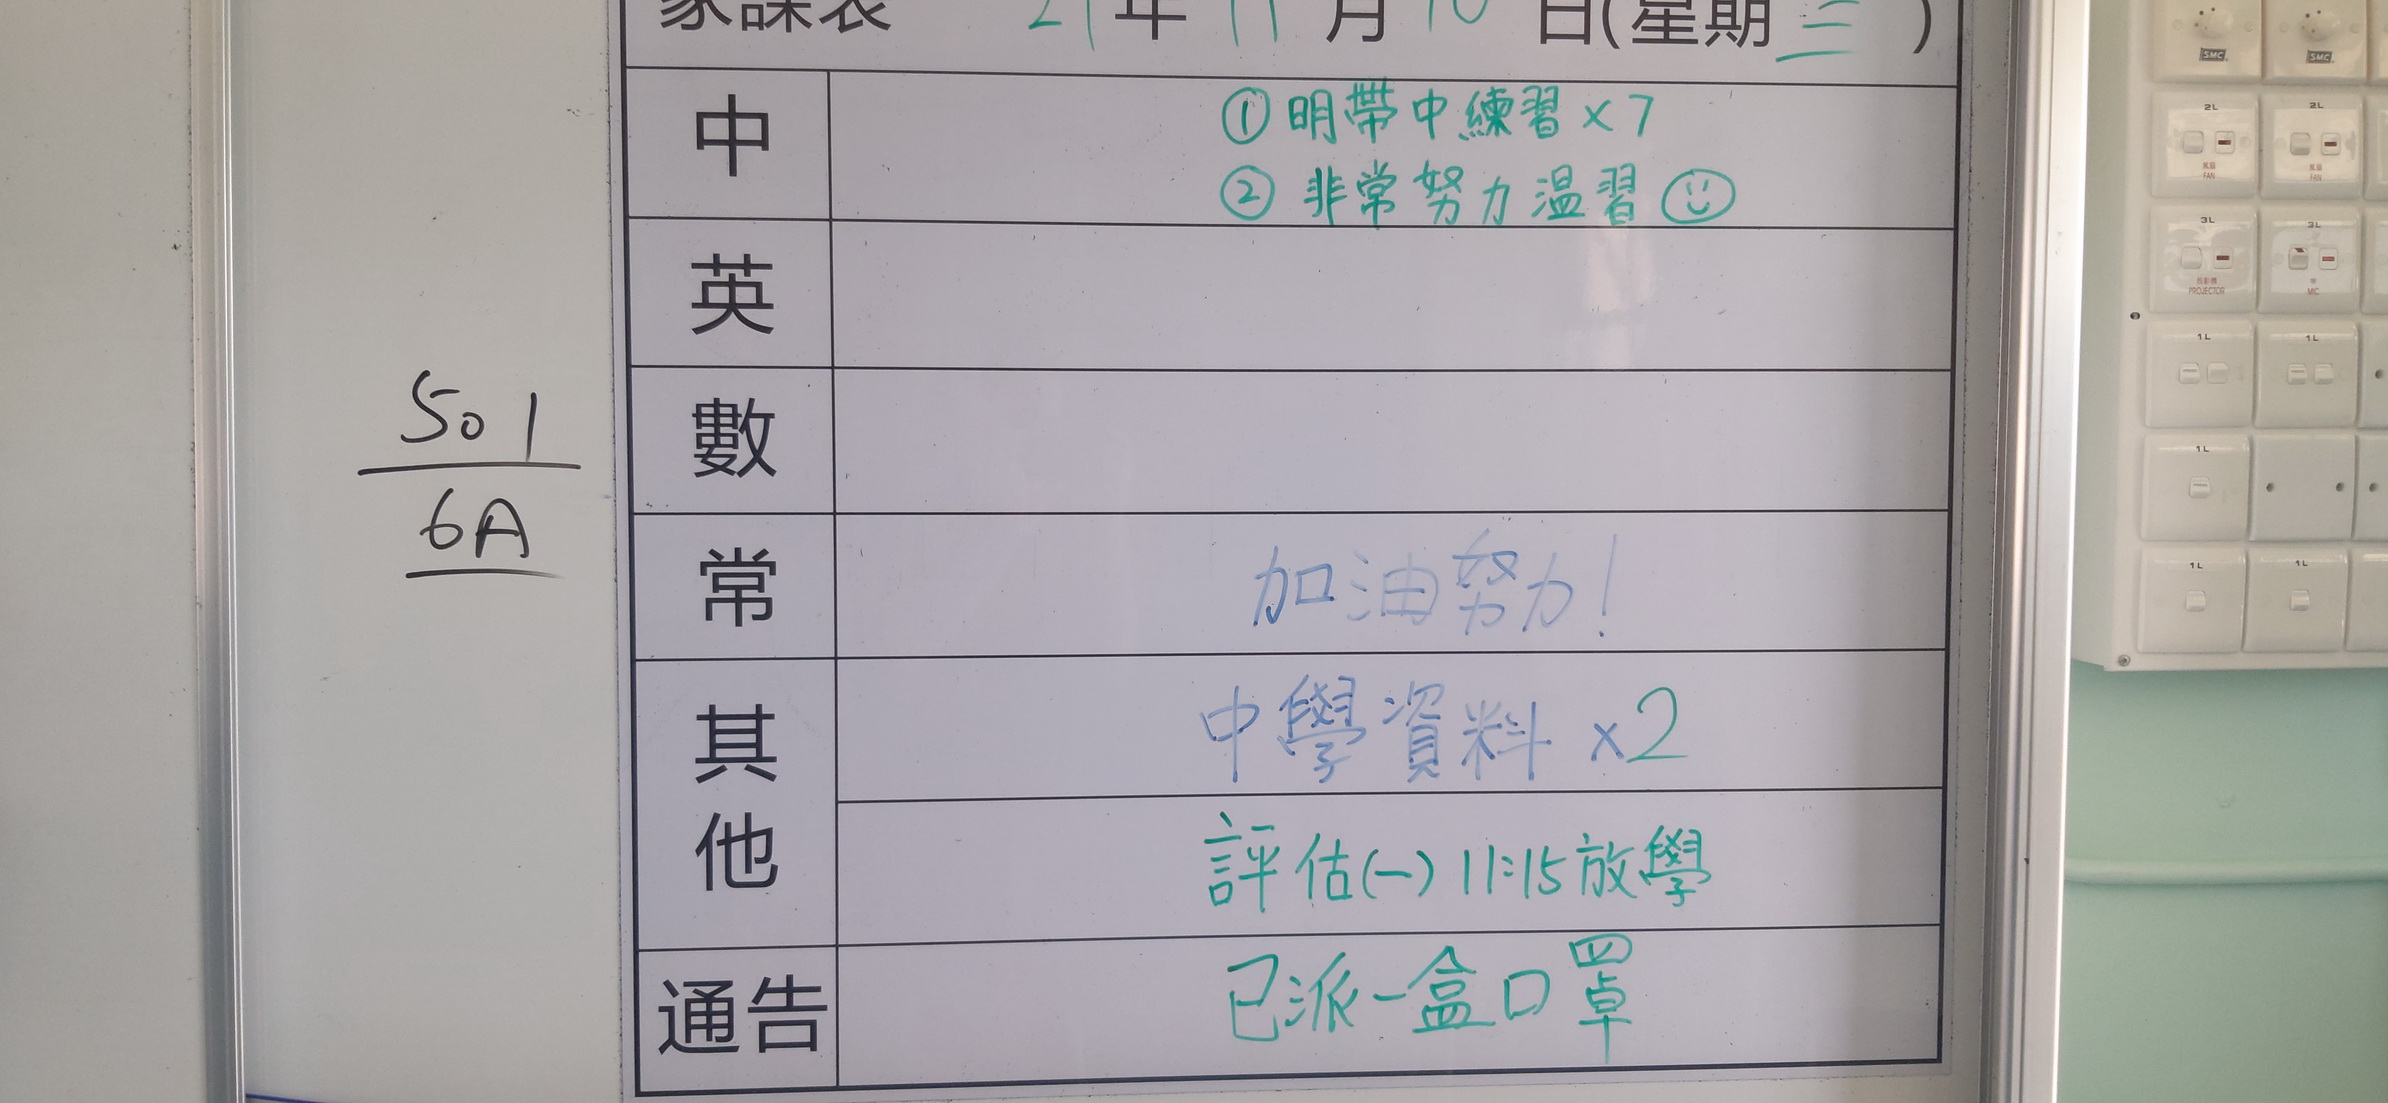 家課表 21年11月10日(星期三)
中
①明帶中練習×7
②非常努力溫習
英
數
常 加油努力!
其他
中學資料×2
評估(一)11:15放學
通告 已派一盒口罩
501
6A
SMC SMC
2L 2L
風扇 風扇
FAN FAN
3L 3L
投影機 咪
PROJECTOR MIC
1L 1L
1L
1L 1L